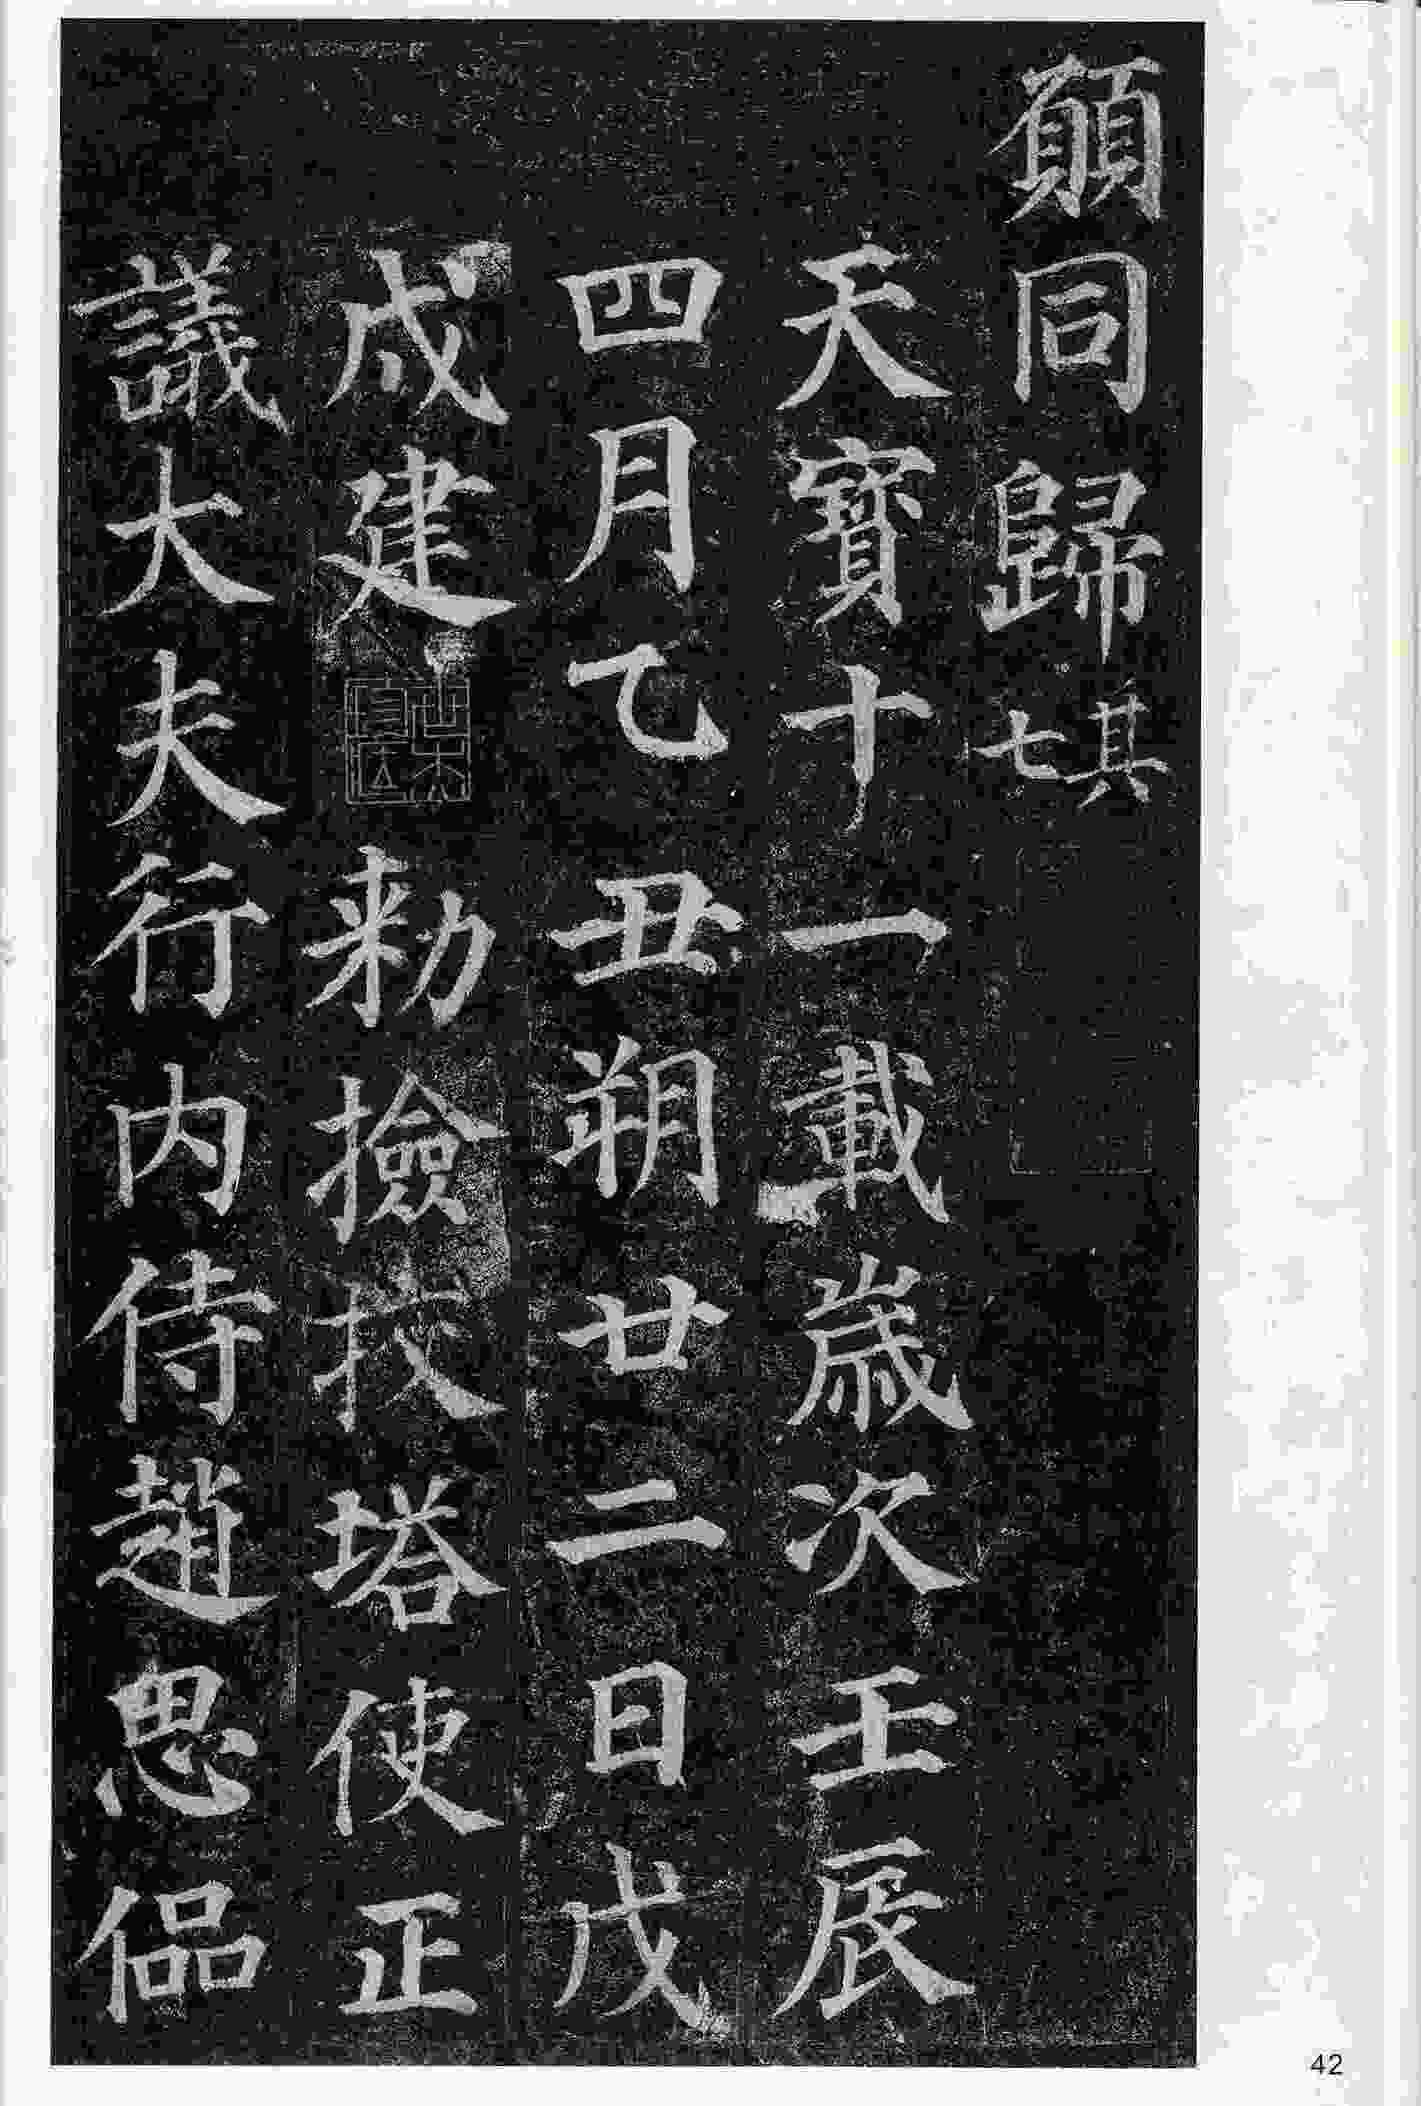 願同歸其七
天寶十一載歲次壬辰
四月乙丑朔廿二日戊
戌建勅撿挍塔使正
議大夫行內侍趙思偘
42